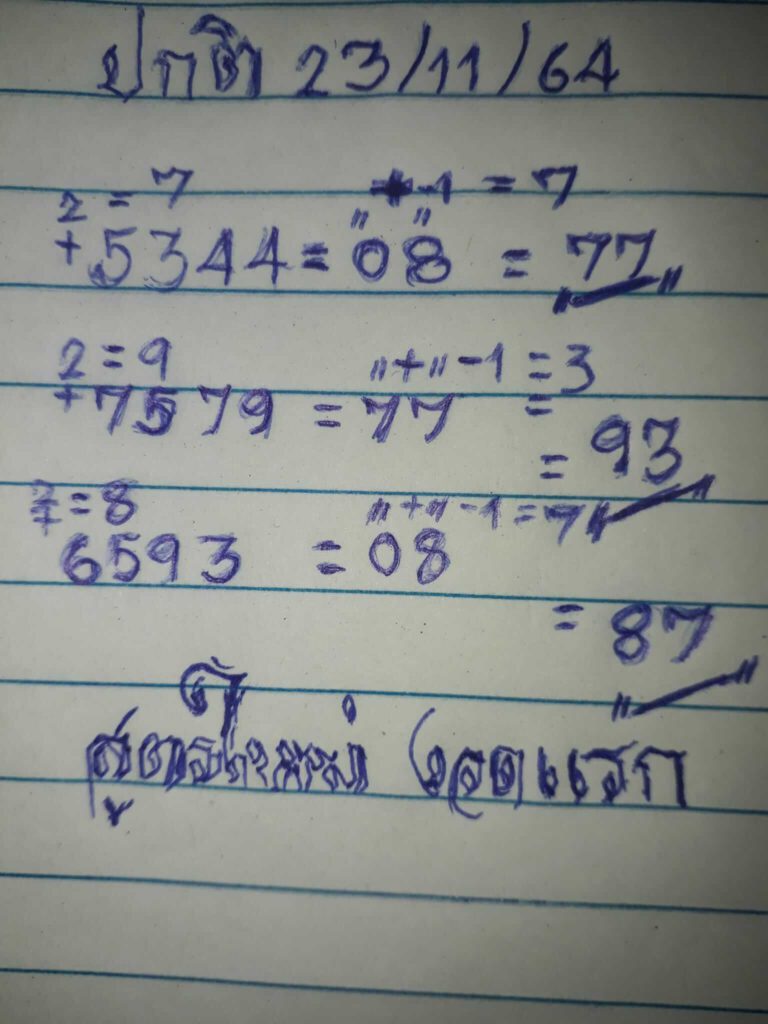 ปกติ 23/11/64
2 = 7 +-1 = 7
+5344 = 08 = 77
2 = 9 "+"-1 = 3
+7579 = 77 =
= 93
2 = 8 "+"-1 = 7
+6593 = 08
= 87
สูตรใหม่ งวดแรก